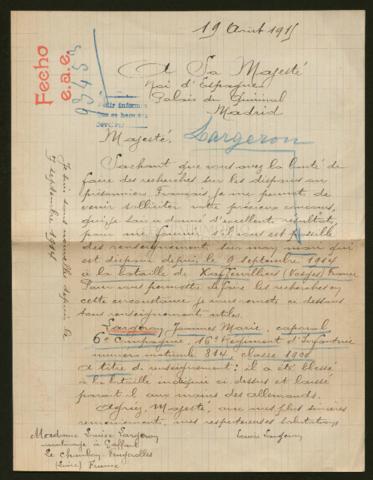 19 Août 1915
A Sa Majesté
Roi d'Espagne
Palais du Quirinal
Madrid
Fecho
e.a.e.
93453
Pedir informes
Largeron
Majesté,
Sachant que vous avez la bonté de
faire des recherches sur les disparus ou
prisonniers Français, je me permet de
venir solliciter votre précieux concours,
qui, je sais a donné d'excellent résultat,
pour me fournir s'il vous est possible
des renseignement sur mon mari qui
est disparu depuis le 9 septembre 1914
à la bataille de Xaffévillers (Vosges) France
Pour vous permettre de faire les recherches en
cette circonstance je vous remets ci dessous
tous renseignements utiles.
Largeron Jammes Marie, caporal
6e Compagnie, 16e Régiment d'Infanterie
numéro matricule 814, classe 1900
A titre de renseignement: il a été blessé
à la bataille indiquée ci dessus et laissé
parait il aux mains des allemands.
Agréez, Majesté, avec mes plus sincères
remerciement, mes respectueuses salutations
Louise Largeron
Madame Louise Largeron
Le Chambon-Feugerolles
(Loire) France
Je suis sans nouvelle depuis le
9 septembre 1914